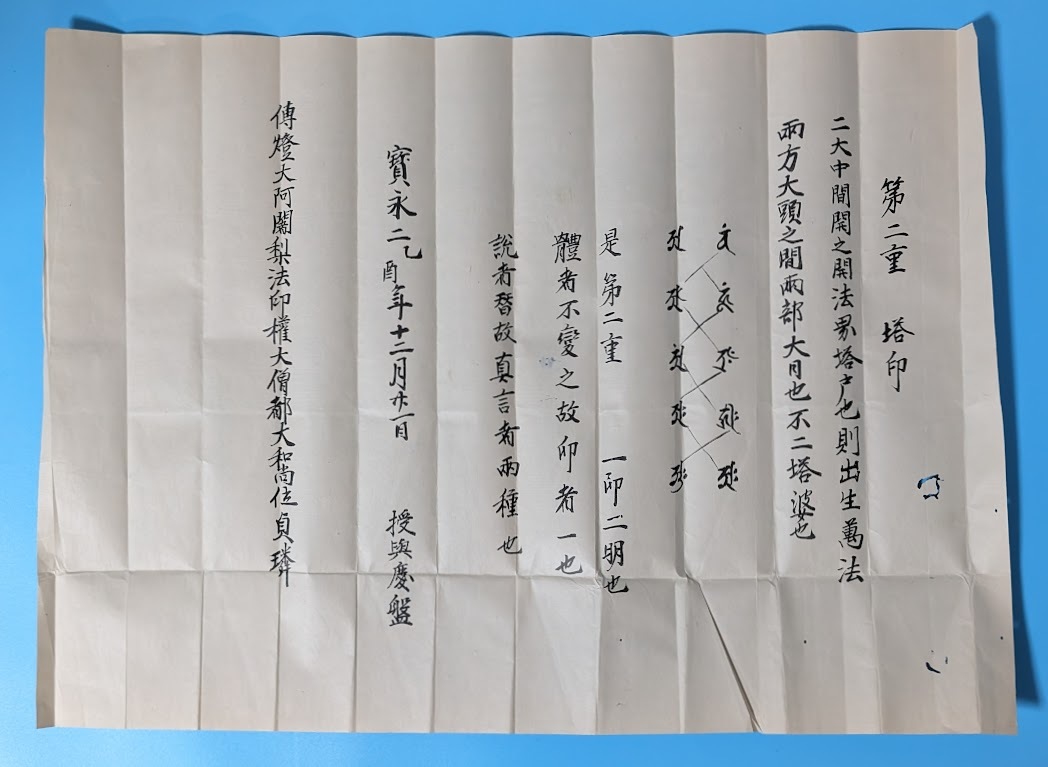 第二重　塔印
二大中間開之開法界塔戸也則出生萬法
兩方大頭之間兩部大日也不二塔婆也
是第二重　一印二明也
體者不變之故印者一也
說者替故真言者兩種也
寳永二乙酉年十二月廿一日　授與慶盤
傳燈大阿闍梨法印權大僧都大和尚位負璘